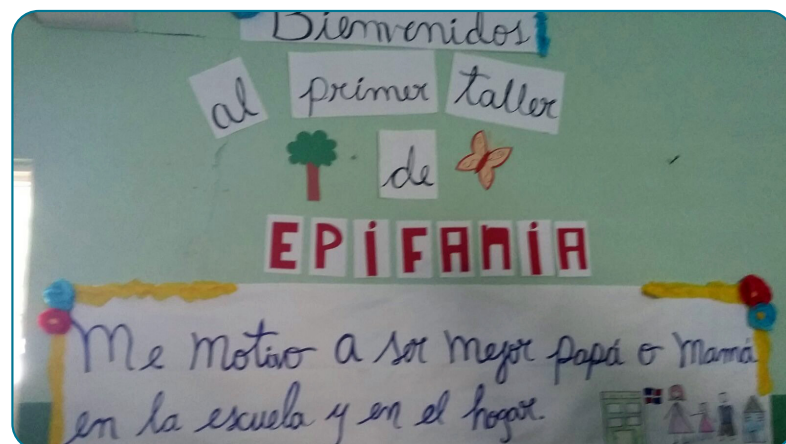 Bienvenidos
al primer taller
de
EPiFANiA
Me motivo a ser mejor papá o mamá
en la escuela y en el hogar.